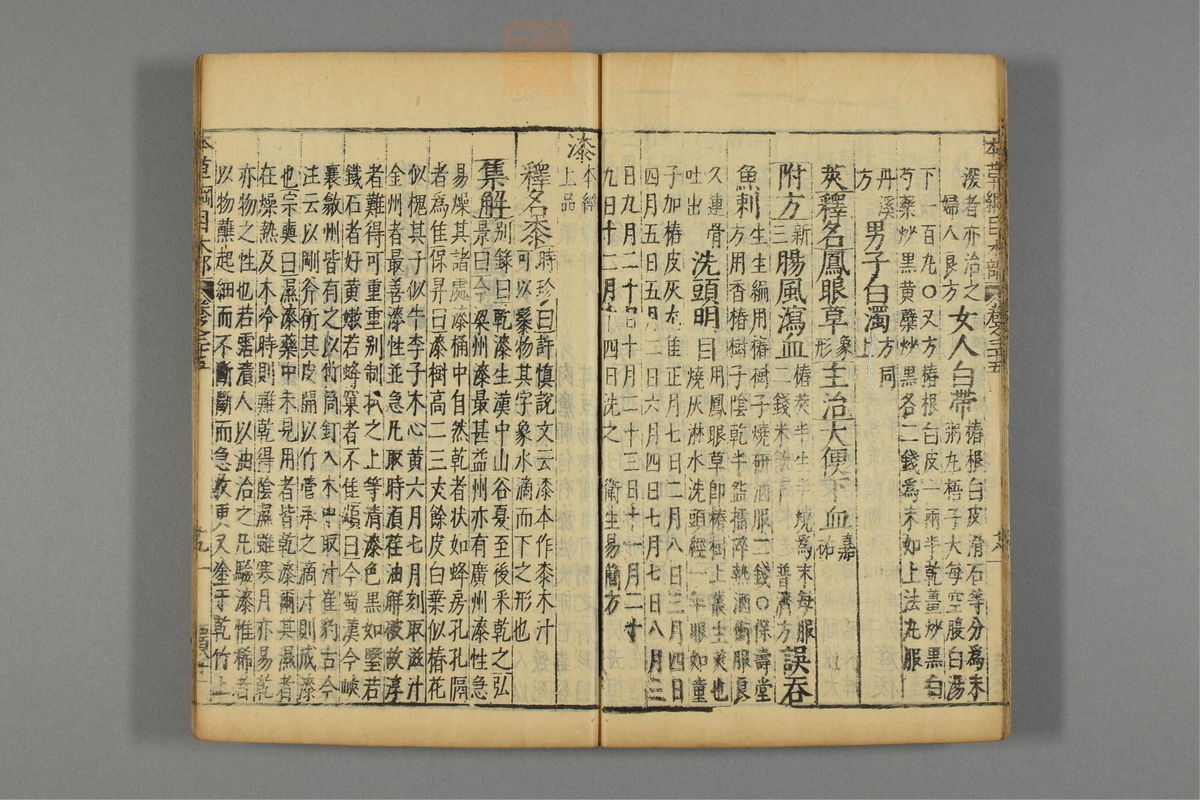 本草綱目木部 卷之三十五
渂者亦治之 婦人良方 女人白帶 椿根白皮滑石等分爲末粥丸梧子大每空腹白湯
下一百丸○又方椿根白皮一兩半乾薑炒黑白
芍藥炒黑黄蘗炒黑各二錢爲末如上法丸服
丹溪方 男子白濁 方同上
莢釋名鳳眼草 象形 主治大便下血 嘉祐
附方 新三 腸風瀉血 椿莢半生半燒爲末每服二錢米飲下 普濟方 誤吞
魚刺 生生編用椿樹子燒研酒服二錢○保壽堂方用香椿樹子陰乾半盌擂碎熱酒衝服良
久連骨吐出 洗頭明目 用鳳眼草即椿樹上叢生莢也燒灰淋水洗頭經一年眼如童
子加椿皮灰尤佳正月七日二月八日三月四日
四月五日五月二日六月四日七月七日八月三
日九月二十日十月二十三日十一月二十
九日十二月十四日洗之 衛生易簡方
漆 本經上品
釋名桼 時珍曰許慎說文云漆本作桼木汁可以髹物其字象水滴而下之形也
集解 别錄曰乾漆生漢中山谷夏至後采乾之弘景曰今梁州漆最甚益州亦有廣州漆性急
易燥其諸處漆桶中自然乾者狀如蜂房孔孔隔
者爲佳保昇曰漆樹高二三丈餘皮白葉似椿花
似槐其子似牛李子木心黄六月七月刻取滋汁
金州者最善漆性並急凡取時須荏油解破故淳
者難得可重重别制拭之上等清漆色黑如瑿若
鐵石者好黄嫩若蜂窠者不佳頌曰今蜀漢金峽
襄歙州皆有之以竹筒釘入木中取汁崔豹古今
注云以剛斧斫其皮開以竹管承之滴汁則成漆
也宗奭曰濕漆藥中未見用者皆乾漆爾其濕者
在燥熱及木冷時則難乾得陰濕雖寒月亦易乾
亦物之性也若霑漬人以油治之凡驗漆惟稀者
以物蘸起細而不斷斷而急收更又塗于乾竹上
本草綱目木部 卷之三十五